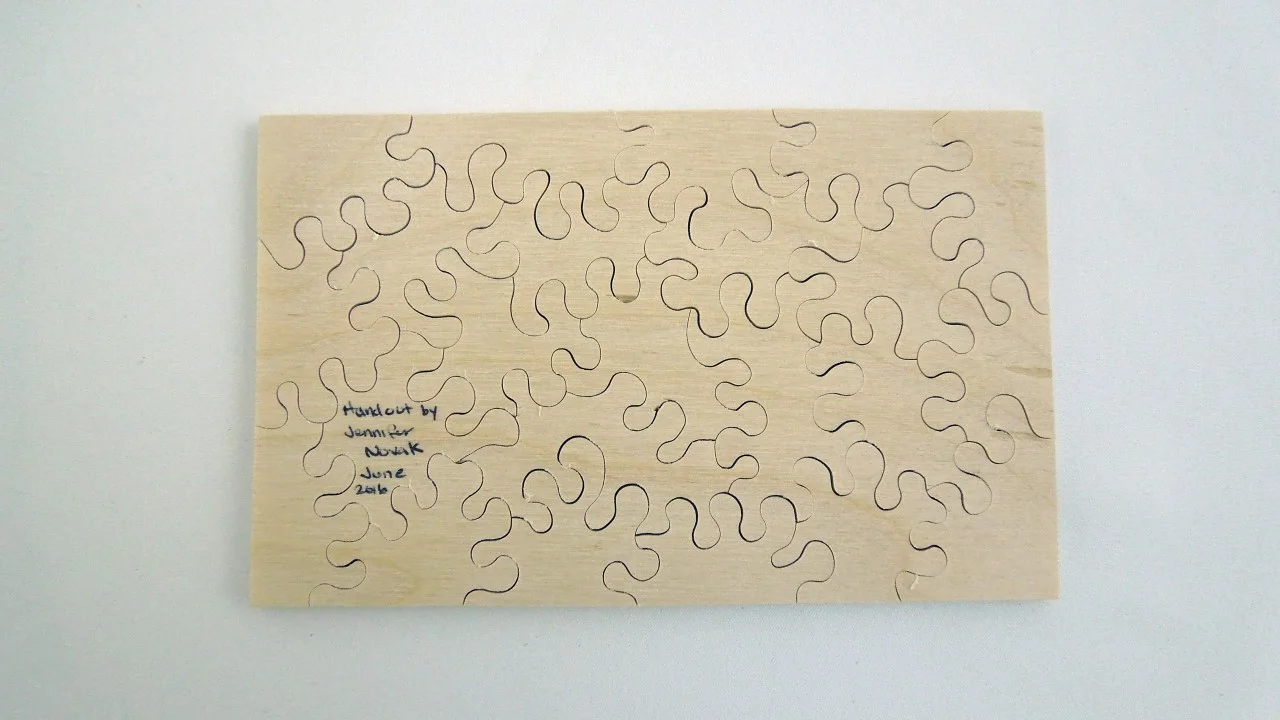 Handout by
Jennifer
Novak
June
2016